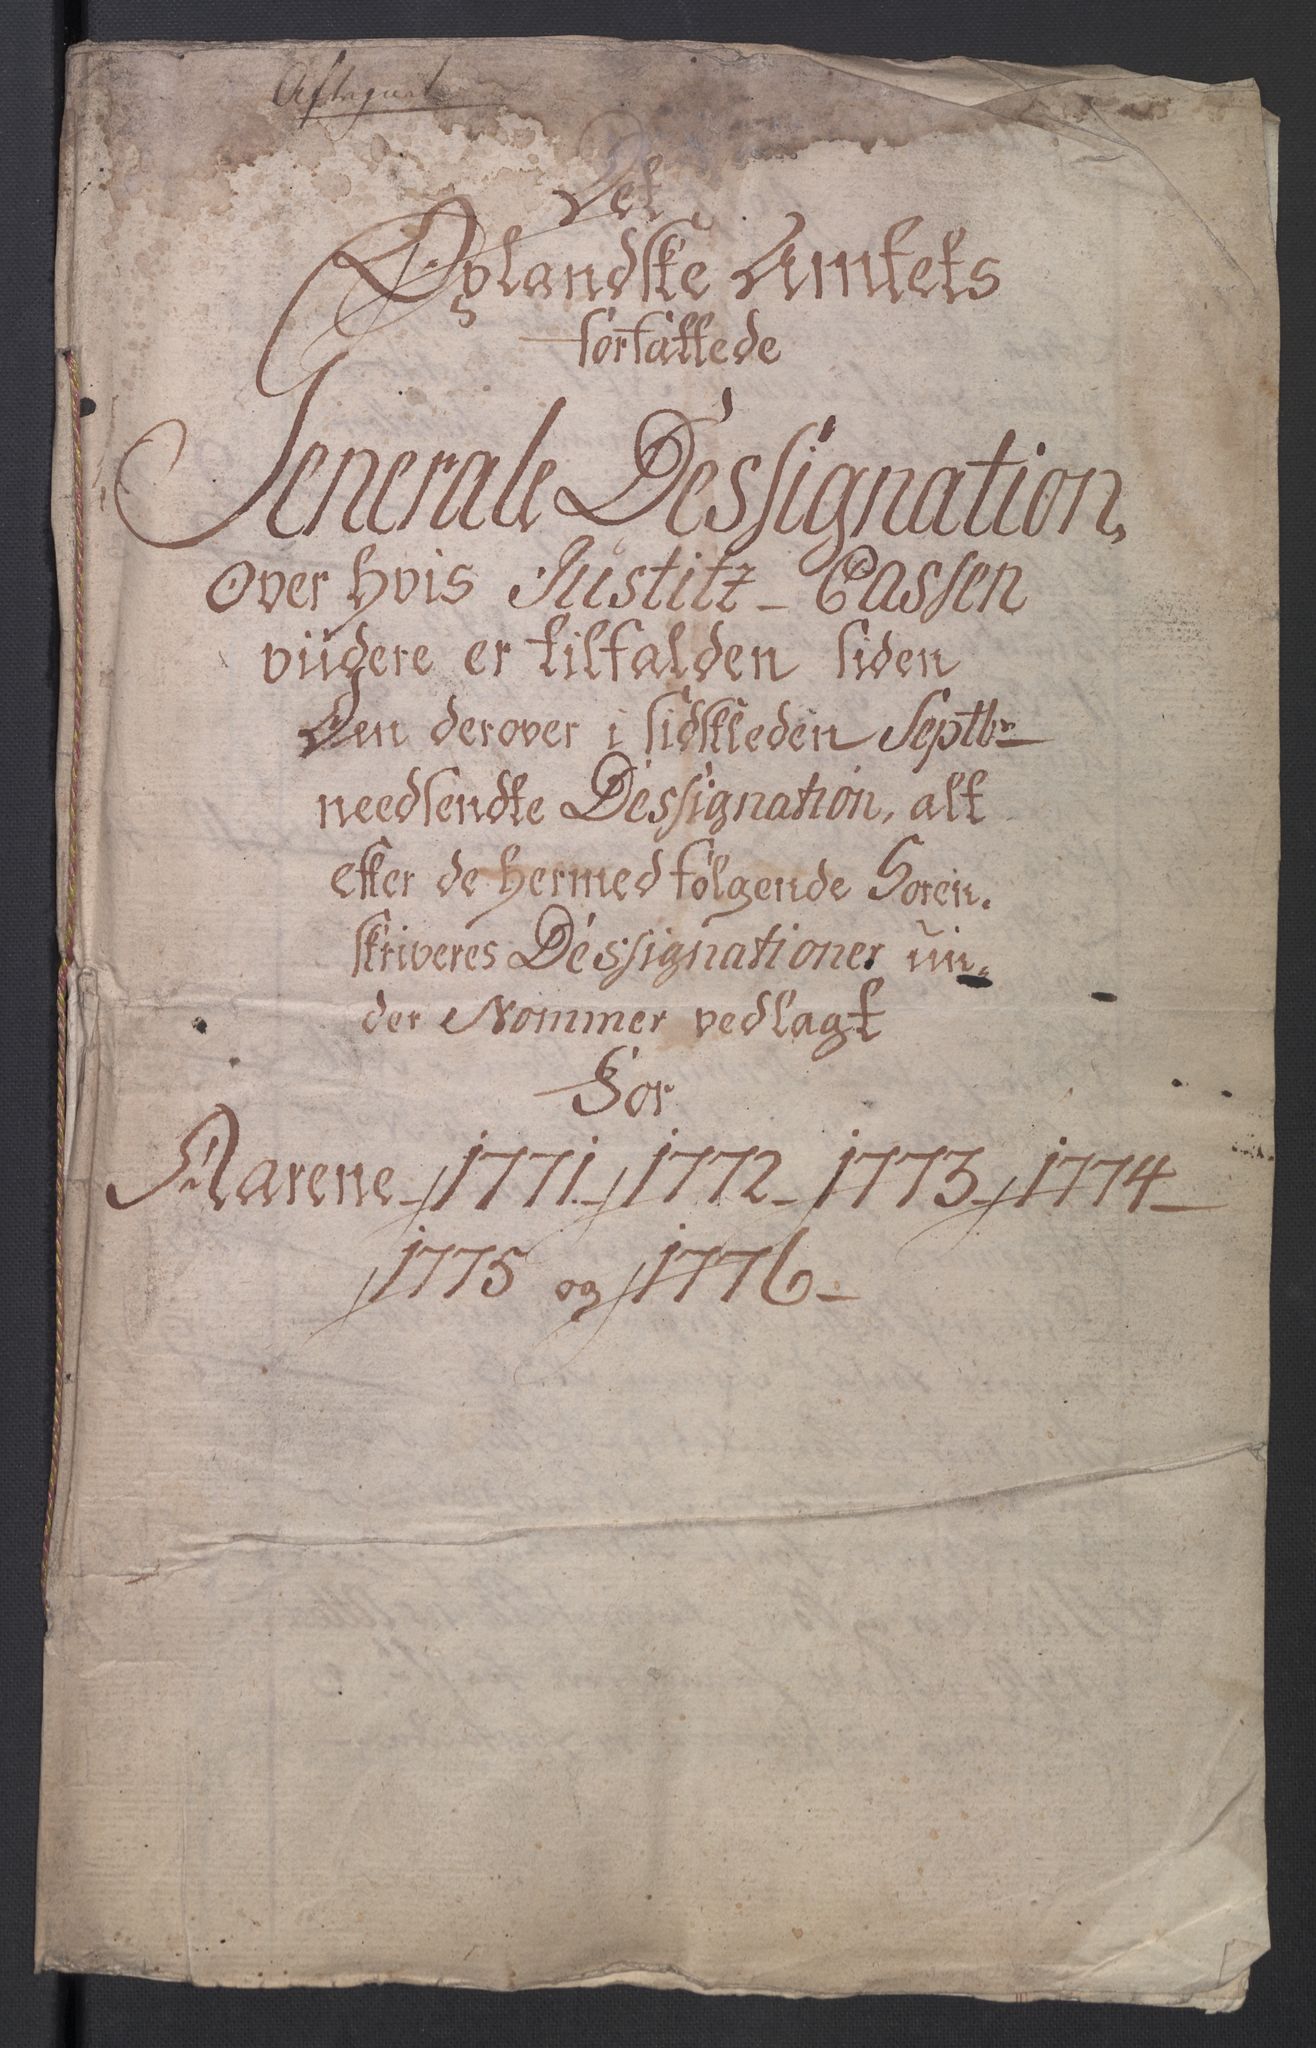 Aftegnet
Det
Oplandske Amtets
forfattede
Generale Dessignation,
over hvis Justitz-Cassen
viidere er tilfalden siden
den derover i sidstleden Septbr
needsendte Dessignation, alt
efter de hermed følgende Soren-
skriveres Dessignationer un-
der Nommer vedlagt
For
Aarene 1771. 1772 1773 1774
1775 og 1776